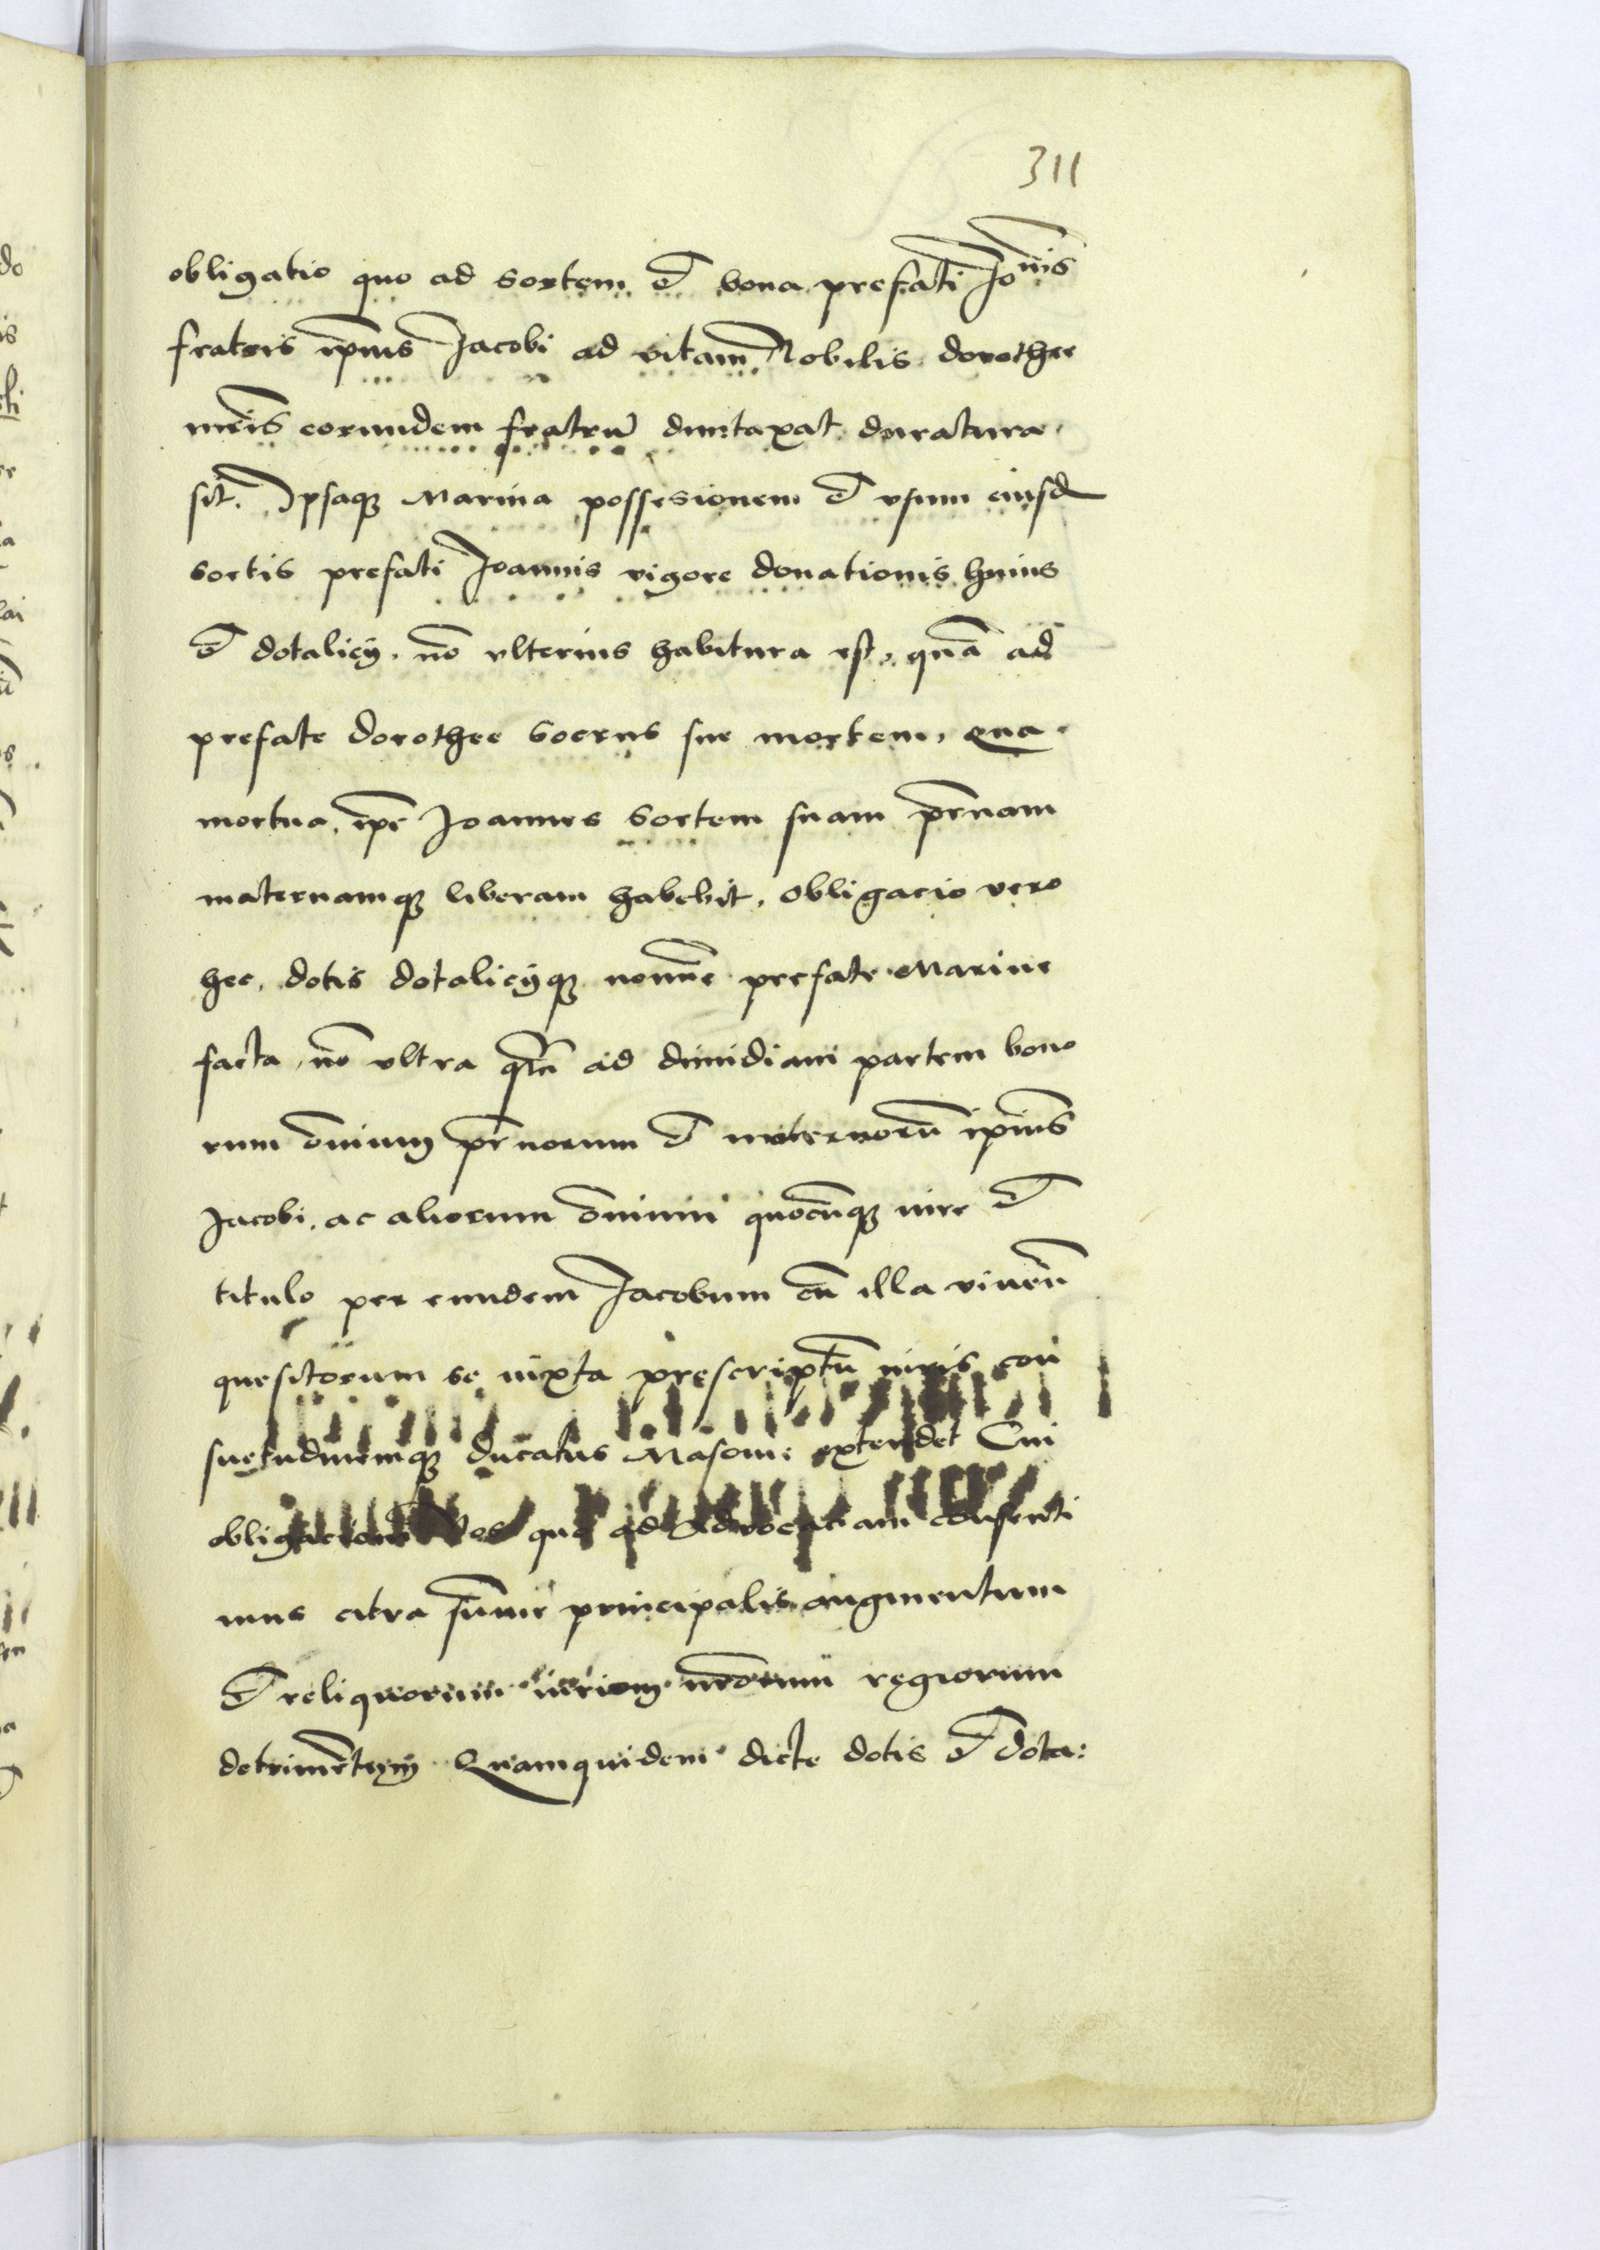 311
obligatio quo ad sortem et bona prefati Io nis
fratris ip̄ius Iacobi ad vitam Nobilis dorothee
mr̄is eorundem fratrū duntaxat duratura
sit. Ipsaqȝ Marina possesionem et vsum eiusd
sortis prefati Ioannis vigore donationis huius
et dotalicij. nō vlterius habitura est, quā ad
prefate dorothee socrus sue mortem, Qua
mortua, ip̄e Joannes sortem suam pr̄nam
maternamqȝ liberam habebit. Obligacio vero
hec, dotis dotalicijqȝ nomīe prefate Marine
facta, nō vltra q̄tū ad dimidiam partem bono
rum om̄ium pr̄norum et maternorū ip̄ius
Jacobi. ac aliorum om̄ium quocūnqȝ iure et
titulo per eundem Jacobum cū illa viuen̄
quesitorum se iuxta prescriptū iuris con
suetudinemqȝ ducatus Masouie extendet Cui
obligacioni Nos quo ad Aduocatiam consenti
mus citra sūme principalis augmentum
et reliquorum iurium nr̄orum regiorum
detrimētum Quamquidem dicte dotis et dota: